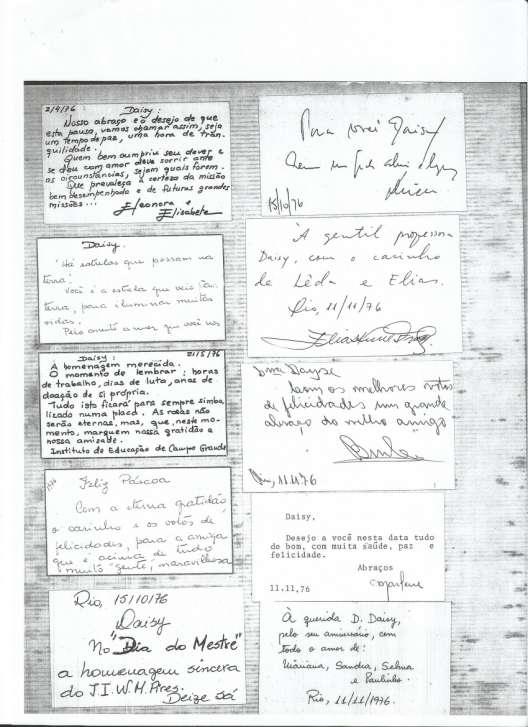 2/4/76
Daisy:
Nosso abraço e o desejo de que
esta pausa, vamos chamar assim, seja
um tempo de paz, uma hora de tran-
quilidade.
Quem bem cumpriu seu dever e
se deu com amor deve sorrir ante
as circunstâncias, sejam quais forem.
Que prevaleça a certeza da missão
bem desempenhada e de futuras grandes
missões...
Eleonora e
Elisabete
Daisy.
"Há estrelas que possam na
terra!
Você é a estrela que veio à
terra, para iluminar muitas
vidas.
Pelo amor que você nos
Daisy: 21/5/76
A homenagem merecida.
O momento de lembrar: horas
de trabalho, dias de luta, anos de
doação de si própria.
Tudo isto ficará para sempre simbo
lizado numa placa. As rosas não
serão eternas, mas, que, neste mo-
mento, marquem nossa gratidão e
nossa amizade.
Instituto de Educação de Campo Grande
1976
Feliz Páscoa
Com a eterna gratidão
o carinho e os votos de
felicidades, para a amiga
que é acima de tudo
muito "gente", maravilhosa
Rio, 15/10/76
Daisy
No "Dia do Mestre"
a homenagem sincera
do J.I. W.M. Pires.
Deize Sá
Para Daisy
15/10/76
À gentil professora
Daisy, com o carinho
de Lêda e Elias.
Rio, 11/11/76
Dona Dayse
com os melhores votos
de felicidades um grande
abraço do velho amigo
Rio, 11.11.76
Daisy,
Desejo a você nesta data tudo
de bom, com muita saúde, paz e
felicidade.
Abraços
11.11.76
Marlene
À querida D. Daisy,
pelo seu aniversário, com
todo o amor de:
Mariana, Sandra, Selma
e Paulinho.
Rio, 11/11/1976.